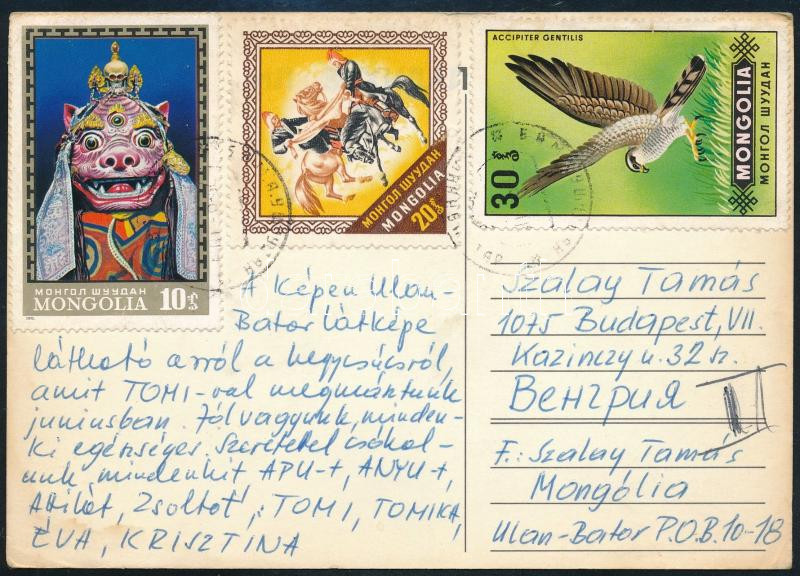 МОНГОЛ ШУУДАН
MONGOLIA 10
МОНГОЛ ШУУДАН
MONGOLIA
20
ACCIPITER GENTILIS
30
MONGOLIA
МОНГОЛ ШУУДАН
A Képen Ulan-
Bator látképe
látható arról a hegycsúcsról,
amit TOMI-val megmásztunk
juniusban. Jól vagyunk, minden-
ki egészséges. Szeretettel csókol-
unk mindenkit APU-t, ANYU-t,
Attilát, Zsoltot,: TOMI, TOMIKA,
ÉVA, KRISZTINA
Szalay Tamás
1075 Budapest, VII.
Kazinczy u. 32 sz.
Венгрия
F.: Szalay Tamás
Mongólia
Ulan-Bator P.O.B. 10-18